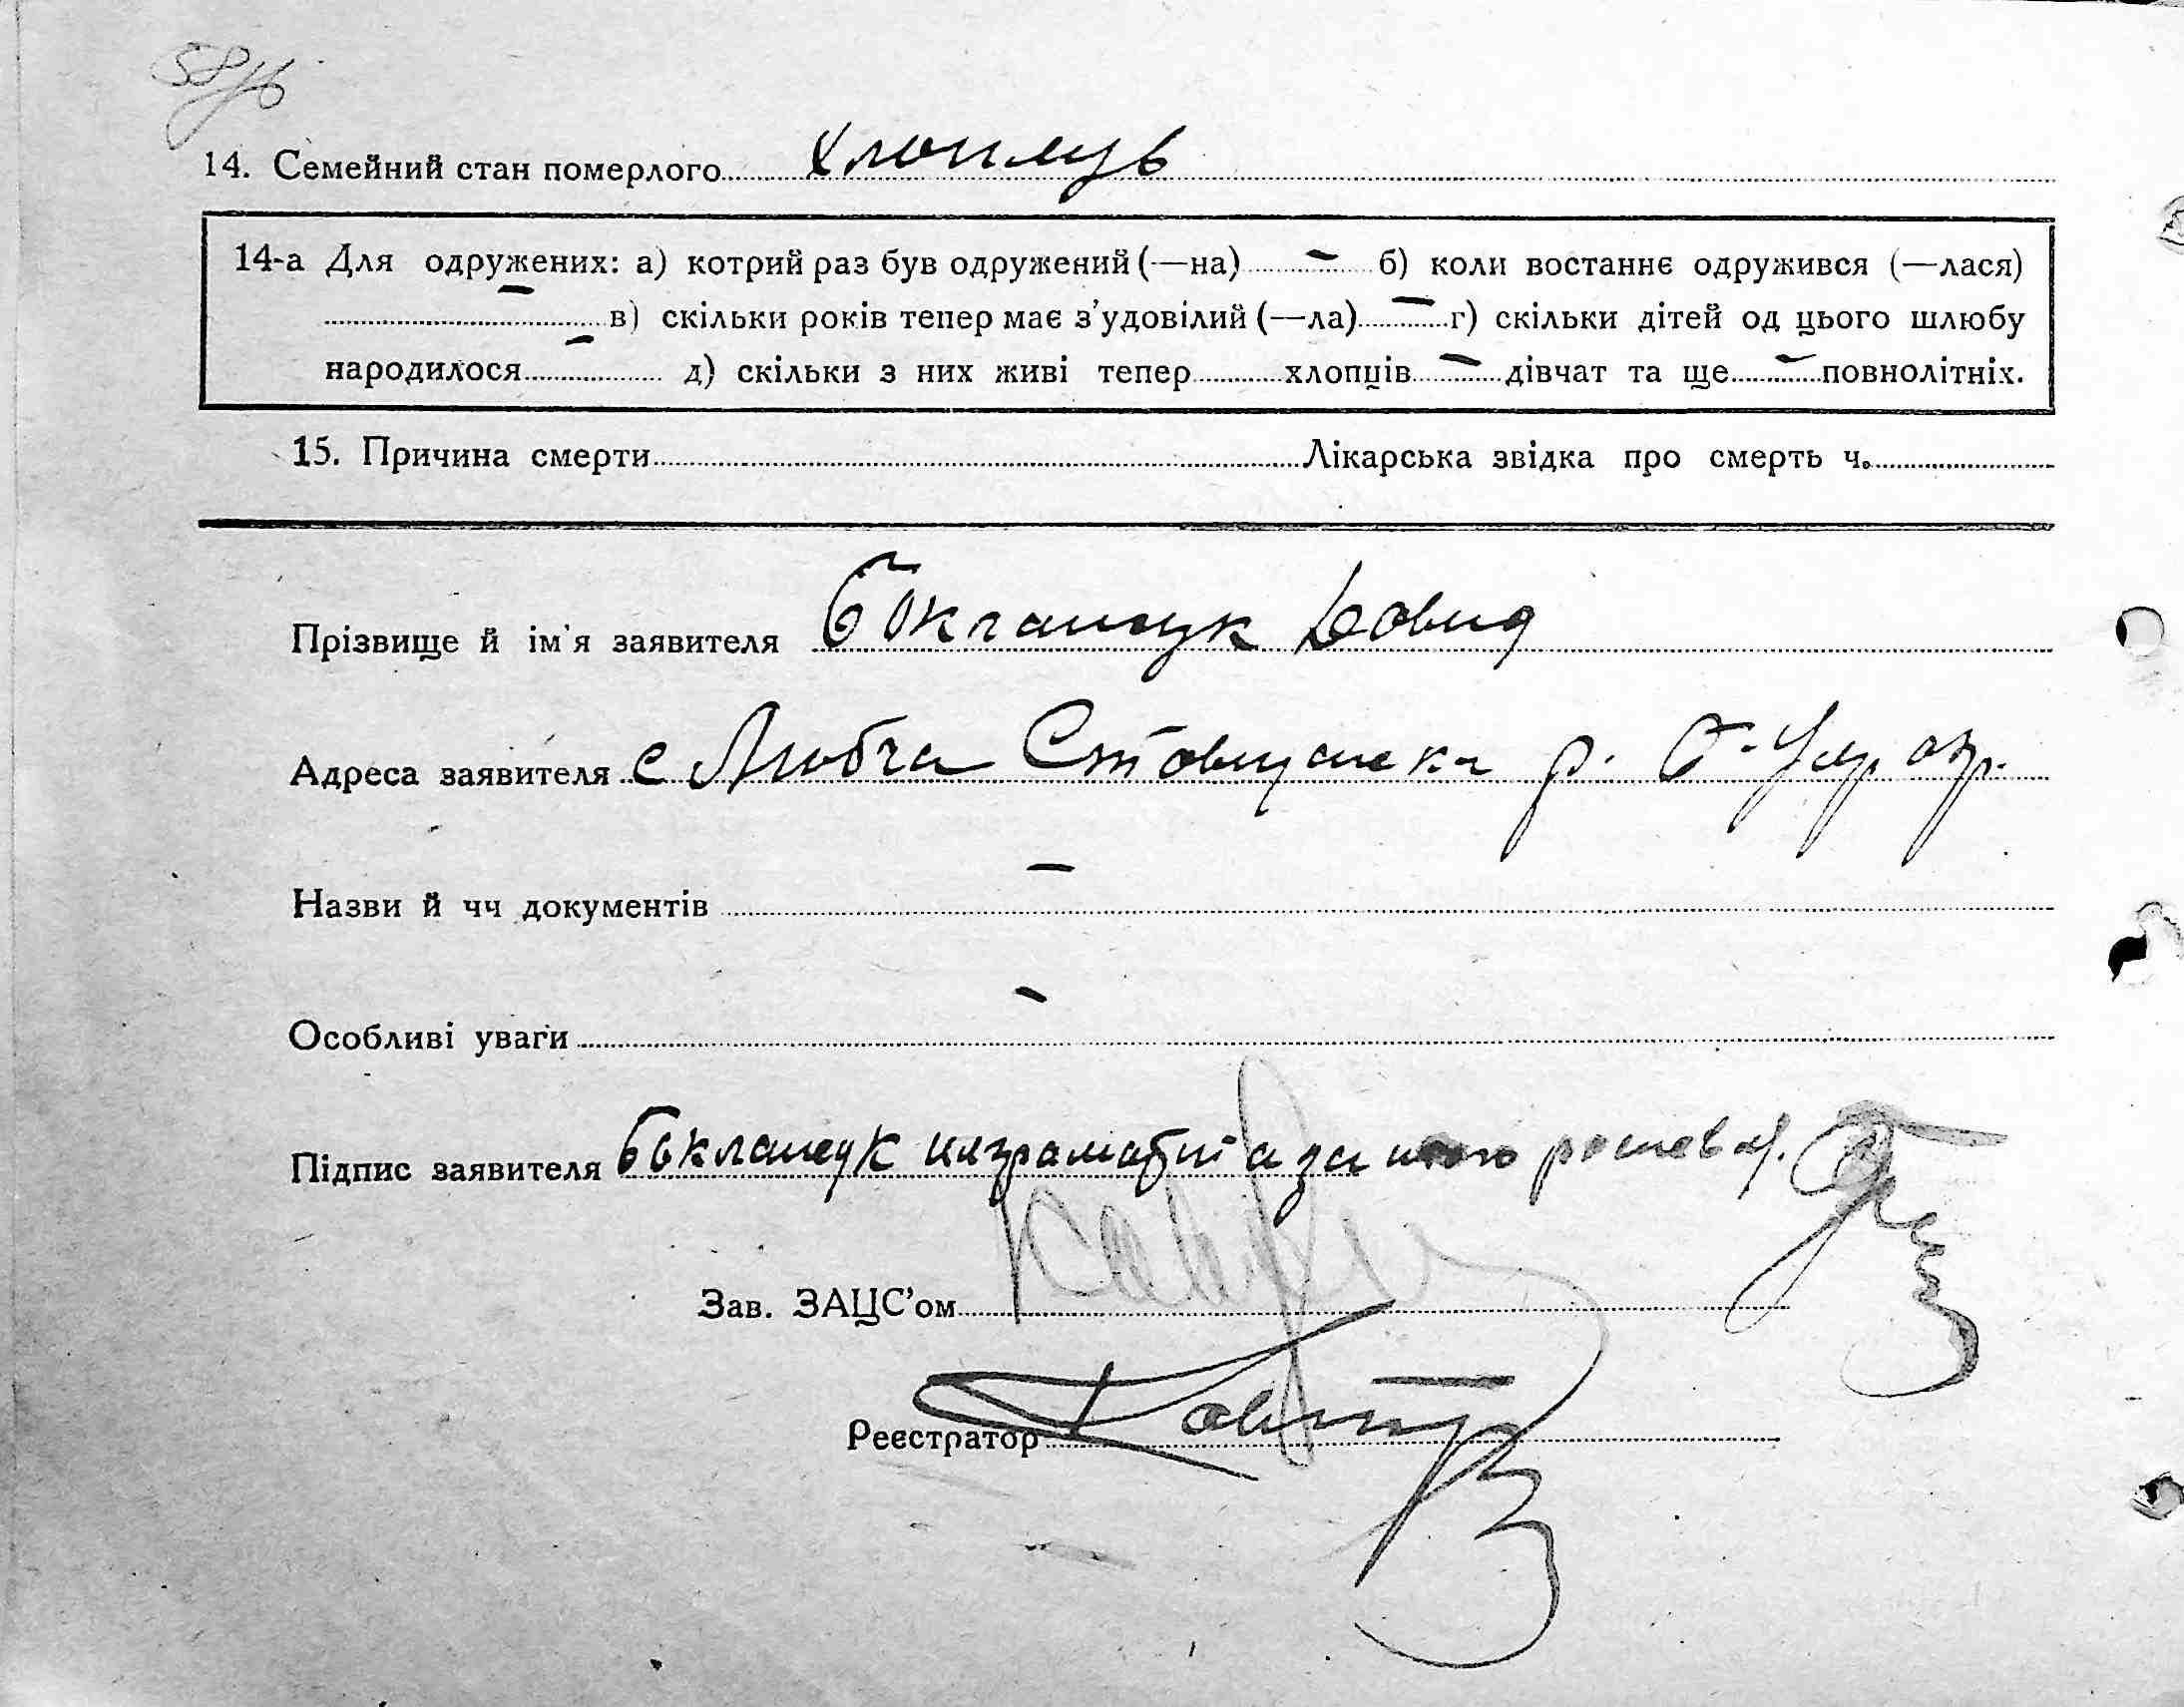 14. Семейний стан померлого хлопець
14-а Для одружених: а) котрий раз був одружений (—на) – б) коли востаннє одружився (—лася)
– в) скільки років тепер має з'удовілий (—ла) – г) скільки дітей од цього шлюбу
народилося – д) скільки з них живі тепер хлопців – дівчат та ще – повнолітніх.
15. Причина смерти Лікарська звідка про смерть ч.
Прізвище й ім'я заявителя Бокланчук Довид
Адреса заявителя с Любча Ставищанск р. Б-Цер окр.
Назви й чч документів –
Особливі уваги –
Підпис заявителя неграмотна за нього
Зав. ЗАЦС'ом
Реєстратор